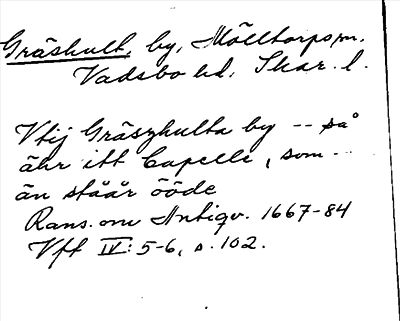 Gräshult, by, Mölltorps sn.
Vadsbo hd, Skar. l.
Vtij Gräszhulta by -- så
ähr itt Capelle, som -
än ståår ööde
Rans. om Antiqv. 1667-84
Vft IV: 5-6, s. 102.